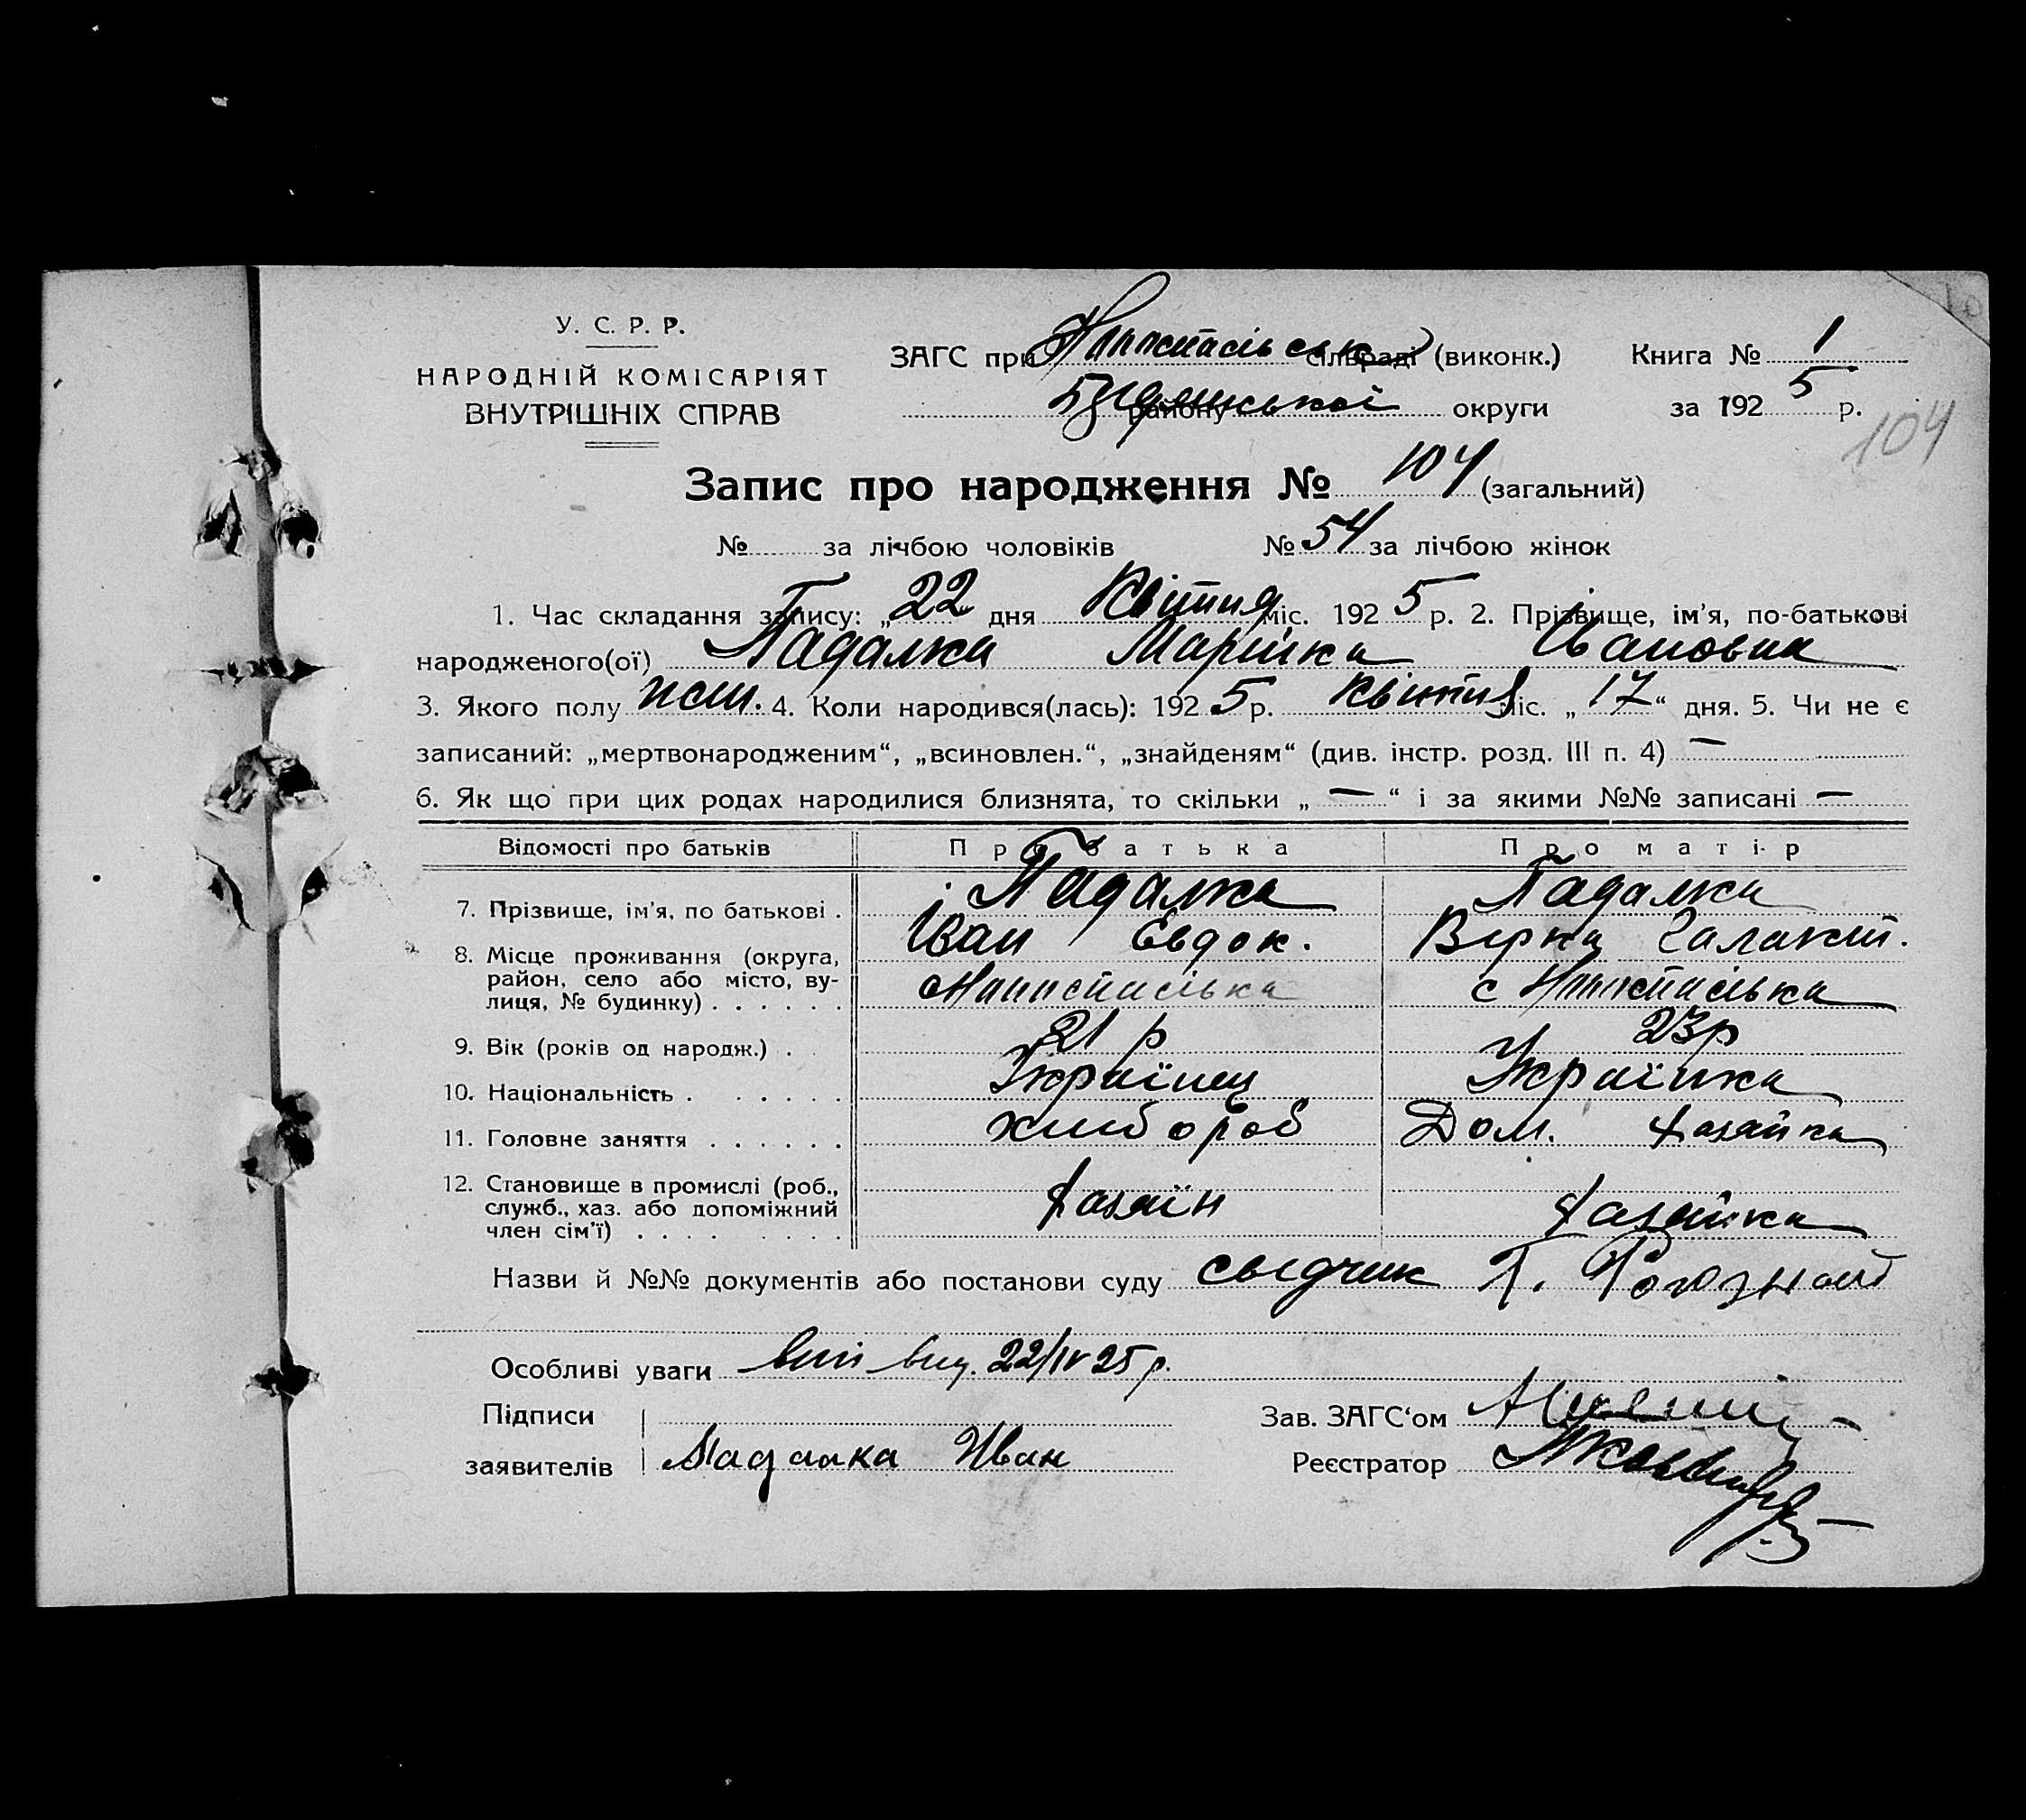 У. С. Р. Р.
НАРОДНІЙ КОМІСАРІЯТ
ВНУТРІШНІХ СПРАВ
ЗАГС при сільраді (виконк.) Книга № 1
району округи за 1925 р.
104
Запис про народження № 104 (загальний)
№ за лічбою чоловіків № 54 за лічбою жінок
1. Час складання запису: „22 дня Квітня міс. 1925 р. 2. Прізвище, ім'я, по-батькові
народженого(ої) Падалка Марійка Івановна
3. Якого полу жін. 4. Коли народився(лась): 1925 р. Квітня міс. „17“ дня. 5. Чи не є
записаний: „мертвонародженим“, „всиновлен.“, „знайденям“ (див. інстр. розд. III п. 4) —
6. Як що при цих родах народилися близнята, то скільки „ — “ і за якими №№ записані —
Відомості про батьків Про батька Про матір
7. Прізвище, ім'я, по батькові . Падалка Падалка
Іван Евдок. Вірка Галакт.
8. Місце проживання (округа,
район, село або місто, вулиця, № будинку) . . . . . . с
9. Вік (років од народж.) . 21 р 23р
10. Національність . . . . . . Українец Українка
11. Головне заняття . . . . . . хлібороб Дом. хазяйка
12. Становище в промислі (роб.,
служб., хаз. або допоміжний
член сім'ї) . . . . . . . . хазяїн хазяйка
Назви й №№ документів або постанови суду свідчик Г.
Особливі уваги вип вид. 22/IV 25 р.
Підписи Зав. ЗАГС‘ом
заявителів Падалка Иван Реєстратор